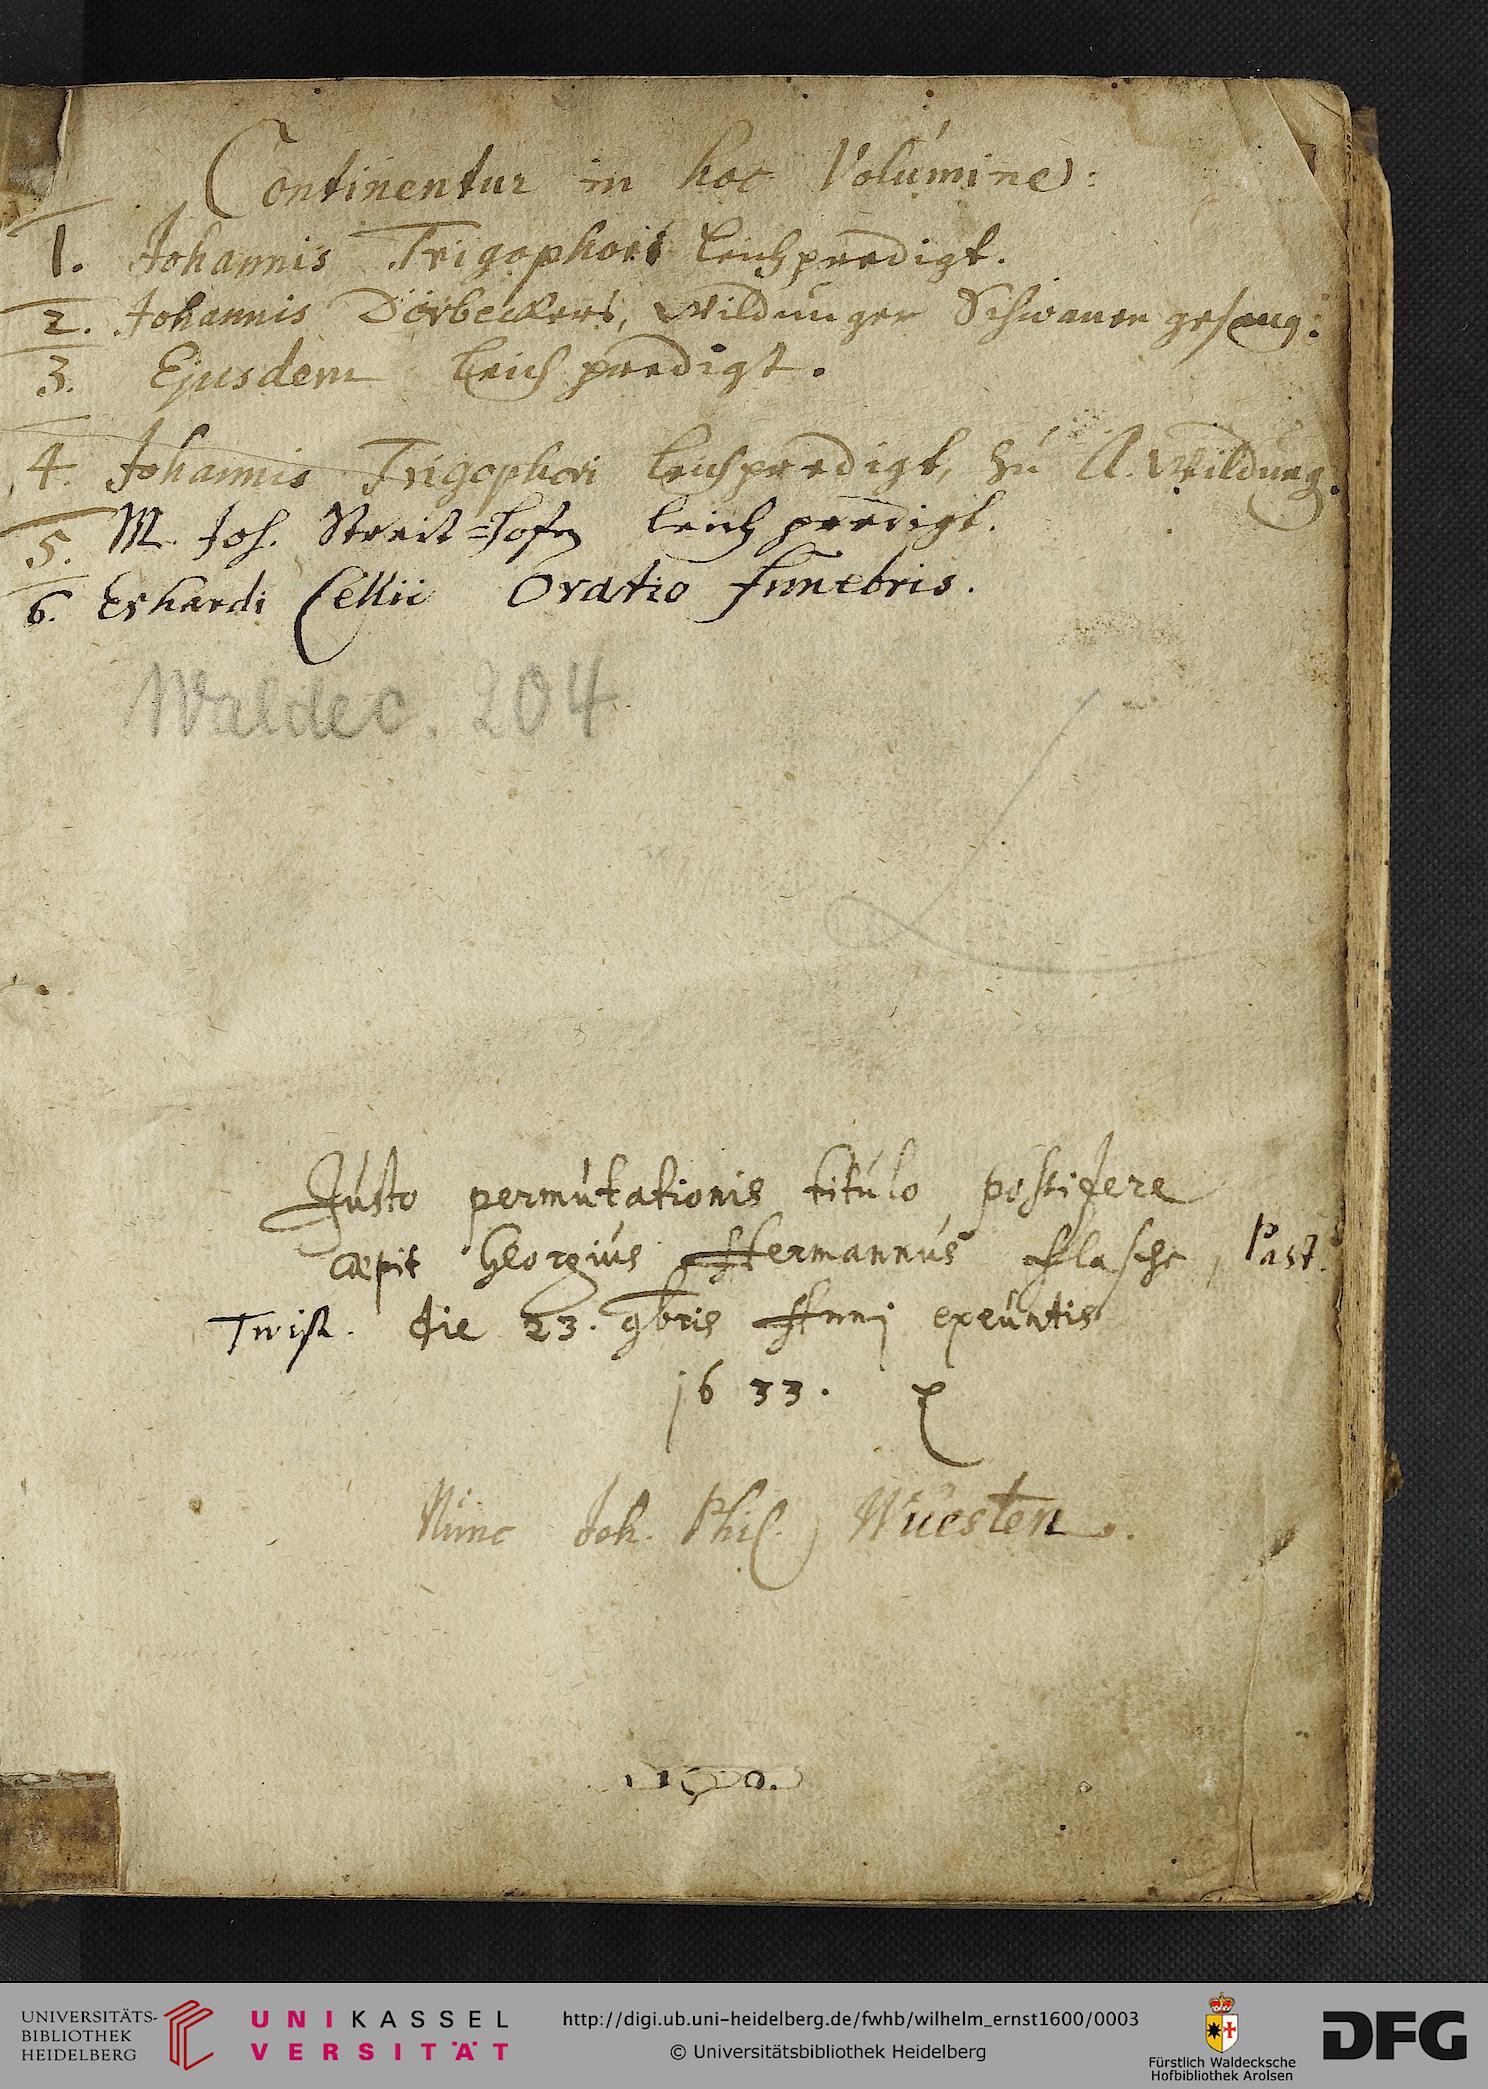 Continentur in hoc Volúmine:
1. Johannis Trigophori Leichpredigt.
2. Johannis Dörbeckers, Wildunger Schwanen gesang:
3. Ejusdem Leichpredigt.
4. Johannis Trigophori Leichpredigt, zú A. Wildung.
5. M. Joh. Leichpredigt.
6. Erhardi Cellii Oratio funebris.
Waldec. 204
Justo permútationis titúlo possidere
cœpit Georgiús Hermannús Flasche, Past.
Twist. die 23. 9bris Anni exeúntis
1633.
Núnc Joh. Phil. Wüesten.
UNIVERSITÄTS-
BIBLIOTHEK
HEIDELBERG
UNIKASSEL
VERSITÄT
http://digi.ub.uni-heidelberg.de/fwhb/wilhelm_ernst1600/0003
© Universitätsbibliothek Heidelberg
Fürstlich Waldecksche
Hofbibliothek Arolsen
DFG